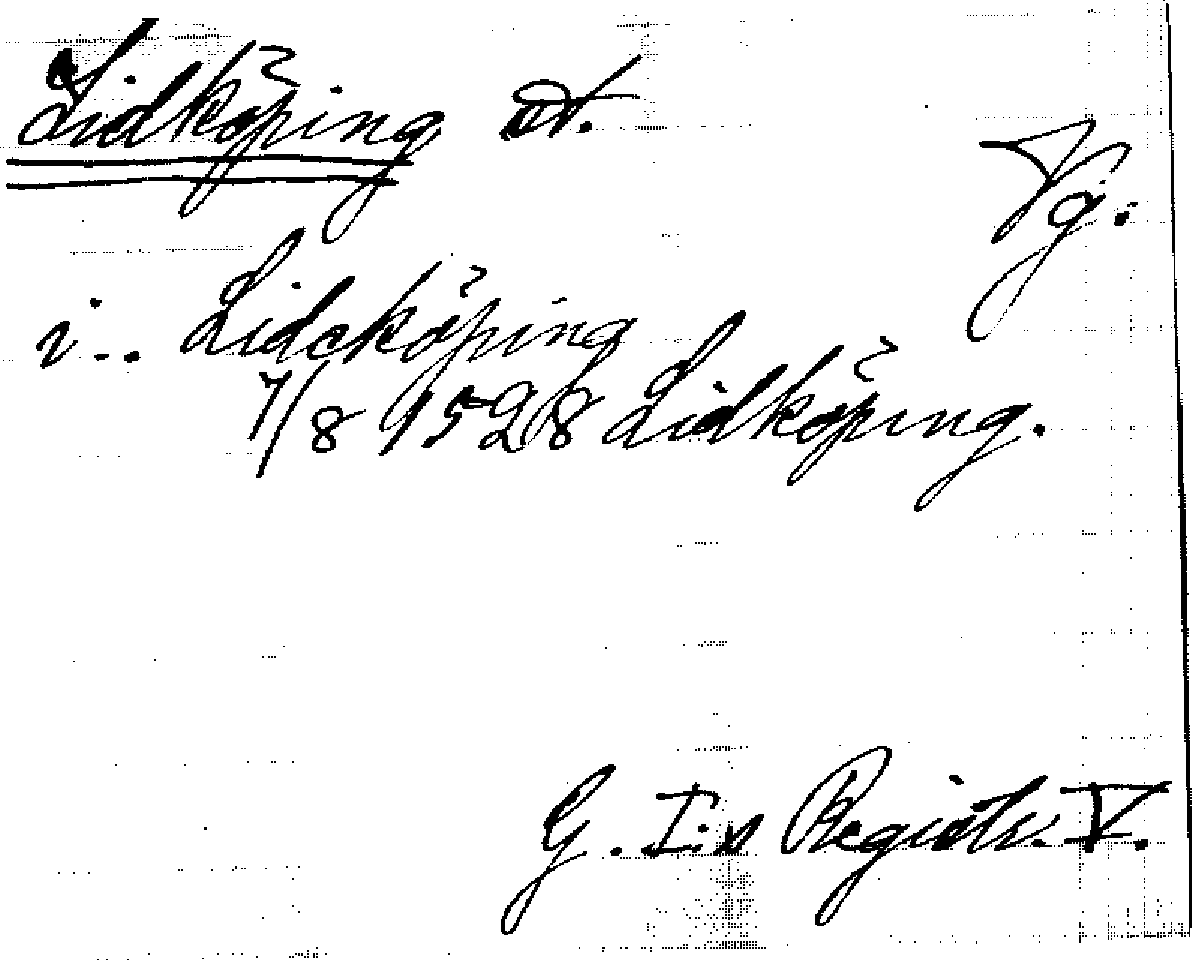 Lidköping st.
Vg.
i.. Lidcköping
7/8 1528 Lidköping.
G. I:s Registr. V.